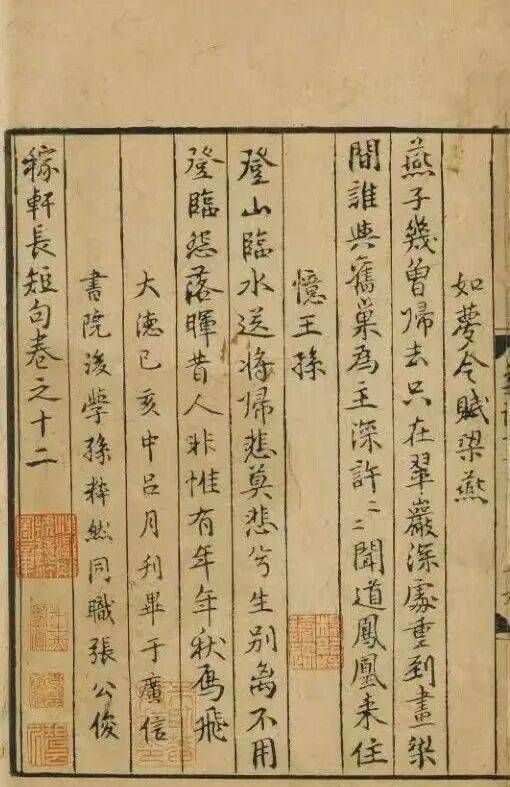 如夢令賦梁燕
燕子幾曽歸去只在翠巖深處重到畫梁
間誰與舊巢爲主深許二二聞道鳳凰来住
憶王孫
登山臨水送將歸悲莫悲兮生別離不用
登臨怨落暉昔人非惟有年年秋鴈飛
大德己亥中吕月刊畢于廣信
書院後學孫粹然同職張公俊
稼軒長短句卷之十二